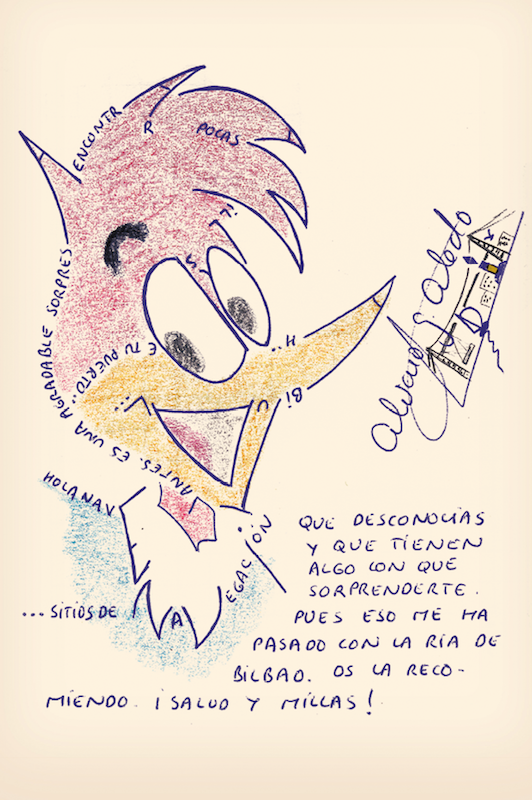 ENCONTR
R
POCAS
ES UNA AGRADABLE SORPRES
E TU PUERTO
H
BI
U
ANTES.
HOLA
... SITIOS DE
A
EGACIÓN
QUE DESCONOCÍAS
Y QUE TIENEN
ALGO CON QUE
SORPRENDERTE.
PUES ESO ME HA
PASADO CON LA RÍA DE
BILBAO. OS LA RECO-
MIENDO. ¡SALUD Y MILLAS!
Alvaro G. Aledo